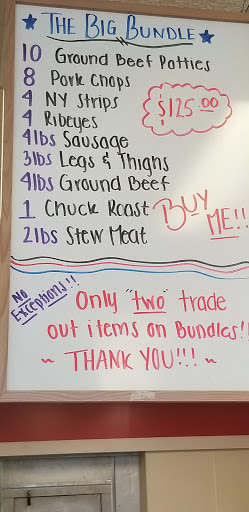 ★ THE BIG BUNDLE ★
10 Ground Beef Patties
8 Pork Chops
4 NY Strips
4 Ribeyes
$125.00
4lbs Sausage
3lbs Legs & Thighs
4lbs Ground Beef
1 Chuck Roast
2lbs Stew Meat
BUY
ME!!
No
Exceptions!!
Only "two" trade
out items on Bundles!!
~ THANK YOU!!! ~